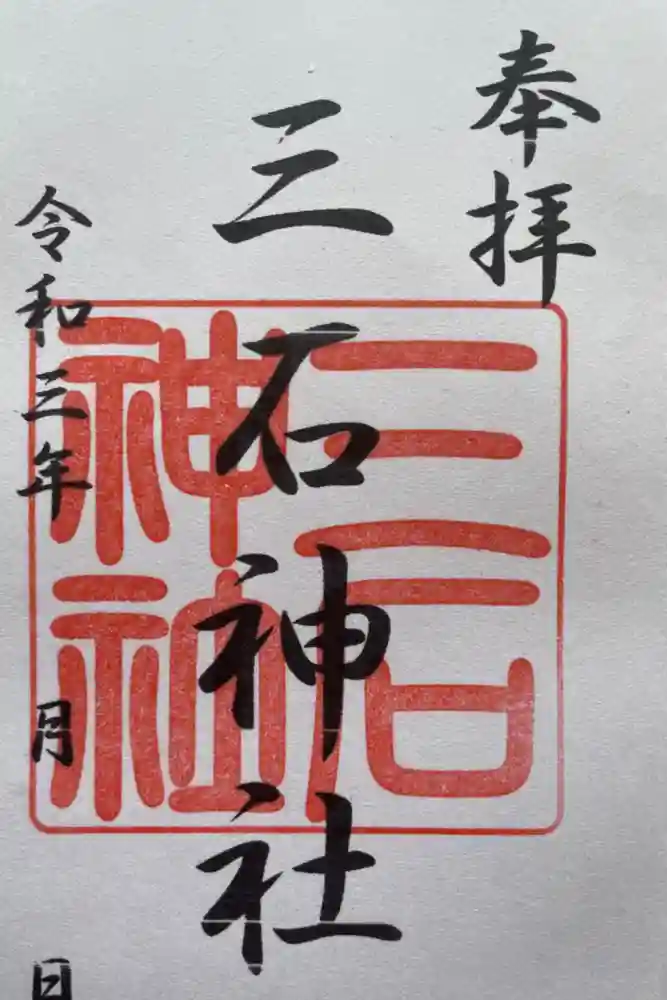 奉拝
三石神社
三石神社
令和三年 月 日